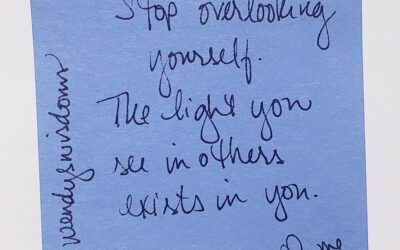 Stop overlooking
yourself.
The light you
see in others
exists in you.
me
wendyswisdom